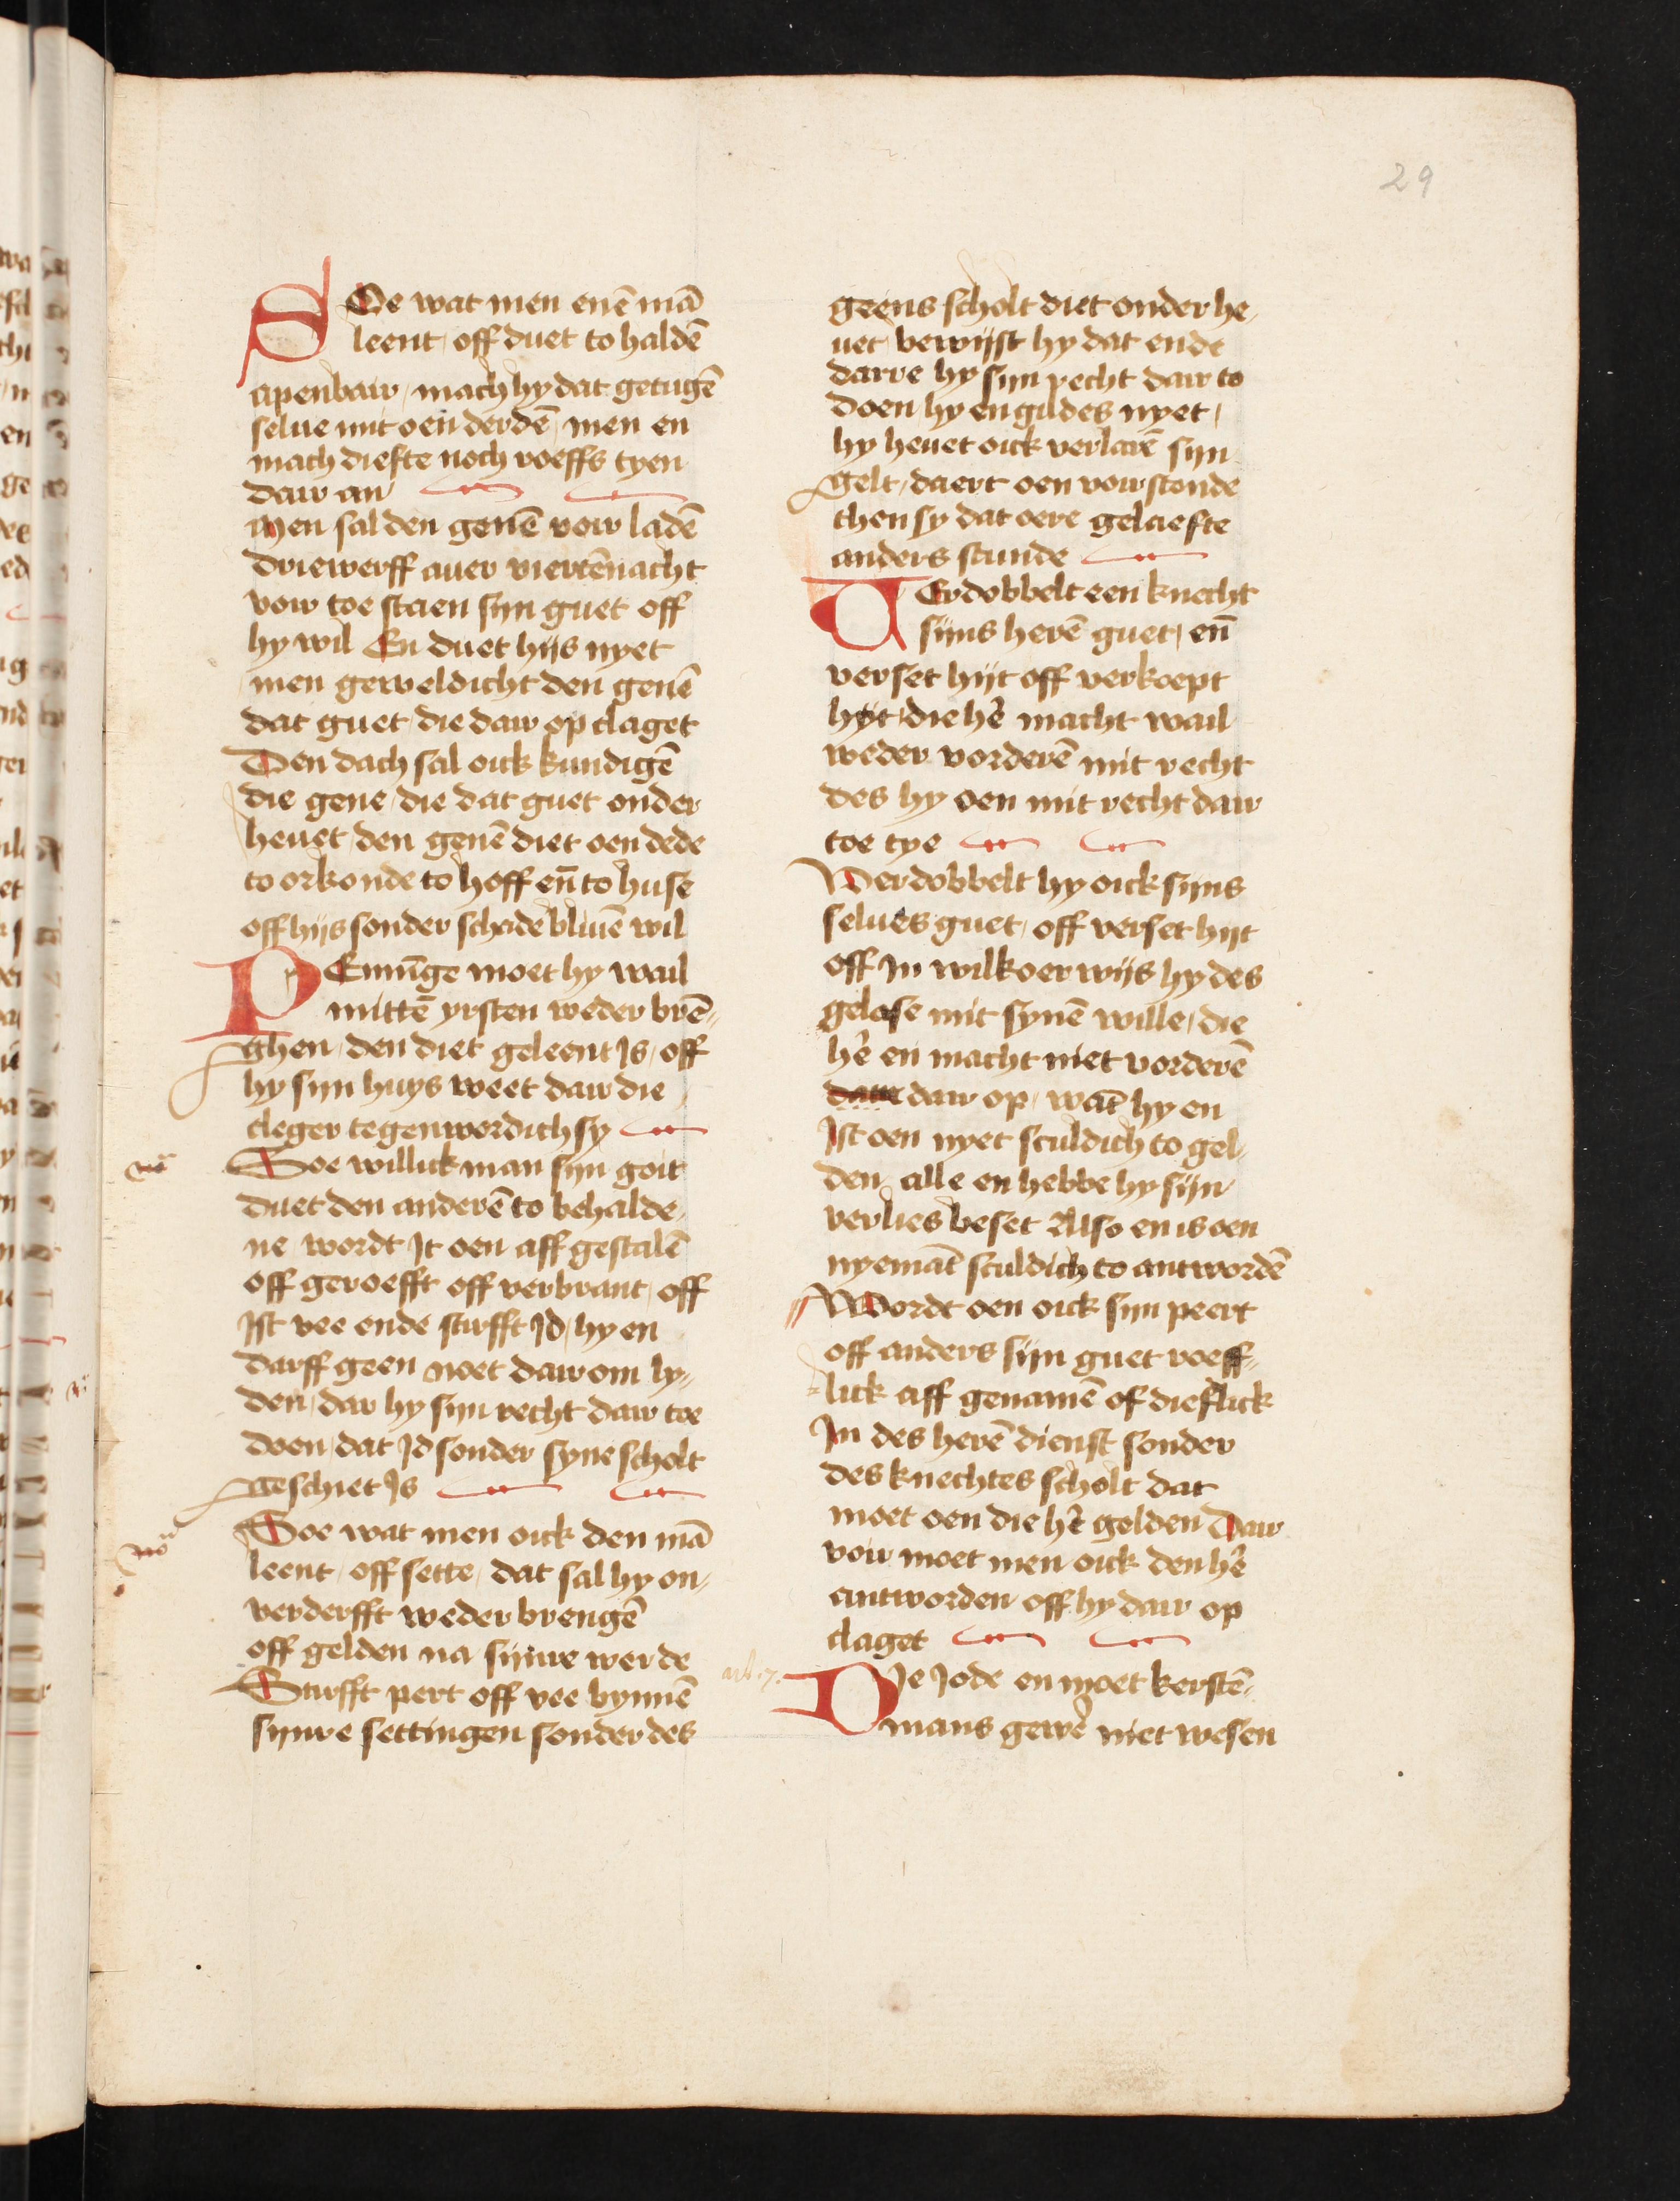 29
SOe wat men enē mā
leent off duet to haldē
apenbair mach hy dat getugē
selue mit oen derdē men en
mach diefte noch roeffs tyen
dair an
Men sal den genē voir ladē
driewerff auer viertēnacht
voir toe staen sijn guet off
hy wil En duet hijs nyet
men geweldicht den genē
dat guet die dair op claget
Den dach sal oick kundigē
die gene die dat guet onder
heuet den genē diet oen dede
to orkonde to hoff eñ to huse
off hijs sonder schade bliuē wil
PEnnīge moet hy wail
mittē yrsten weder brē-
ghen den diet geleent Is off
hy sijn huys weet dair die
cleger tegenwordich sy
Soe willick man sijn goit
duet den anderē to behalde
ne wordt It oen aff gestalē
off geroefft off verbrant off
Ist vee ende starfft Id hy en
darff geen noet dair om ly-
den dar hy sijn recht dair toe
doen dat Id sonder syne scholt
geschiet Is
Soe wat men oick den mā
leent off sette dat sal hy on-
verderfft weder brengē
off gelden na sijnre werde
Starfft pert off vee bynnē
sijnre settingen sonder des
geens scholt diet onder he-
uet bewijst hy dat ende
darre hy sijn recht dair to
doen hy en gildes nyet
hy heuet oick verlarē sijn
gelt daert oen voir stonde
then sy dat oere gelaefte
anders stunde
VErdobbelt een knecht
sijns herē guet eñ
verset hijt off verkoept
hijt die hē macht wail
weder vorderē mit recht
des hy oen mit recht dair
toe tye
Verdobbelt hy oick sijns
selues guet off verset hijt
off In wilkoer wijs hy des
gelose mit synē wille die
hē en macht niet vorderē
dair op wāt hy en
Ist oen nyet sculdich to gel-
den alle en hebbe hy sijn
verlies beset Also en is oen
nyemāt sculdich to antwordē
Wordt oen oick sijn peert
off anders sijn guet roeff-
lick aff genamē of dieflick
In des herē dienst sonder
des knechtes scholt dat
moet oen die hē gelden Dair
voir moet men oick den hē
antworden off hy dair op
claget
DIe Jode en moet kerstē-
mans gewē niet wesen